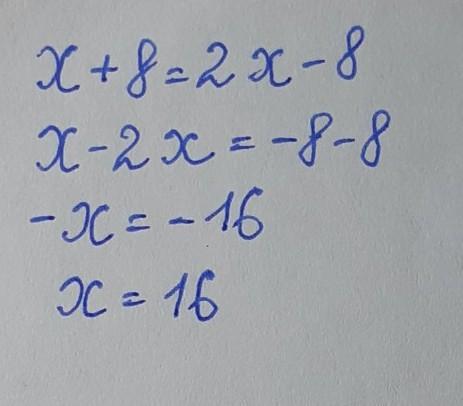 x + 8 = 2x - 8
x - 2x = -8 - 8
-x = -16
x = 16